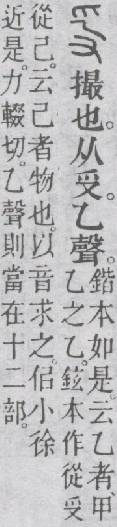 撮也。从𠬪。乙聲。鍇本如是。云乙者、甲
乙之乙。鉉本作從𠬪
從己。云己者物也。以音求之。佀小徐
近是。力輟切。乙聲則當在十二部。